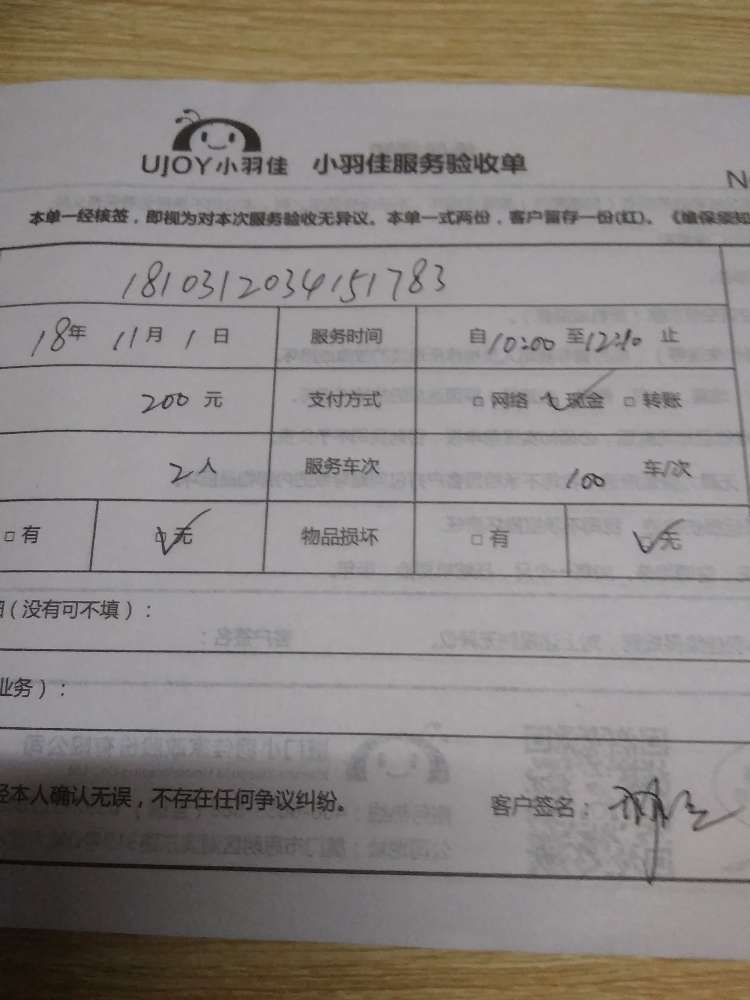 UJOY小羽佳 小羽佳服务验收单
N
本单一经核签，即视为对本次服务验收无异议。本单一式两份，客户留存一份(红)、《维保须知
1810312034151783
18年 11月 1日 服务时间 自10:00至12:10止
200元 支付方式 □网络 ☑现金 □转账
2人 服务车次 100 车/次
□有 ☑无 物品损坏 □有 ☑无
(没有可不填)：
业务)：
经本人确认无误，不存在任何争议纠纷。 客户签名：